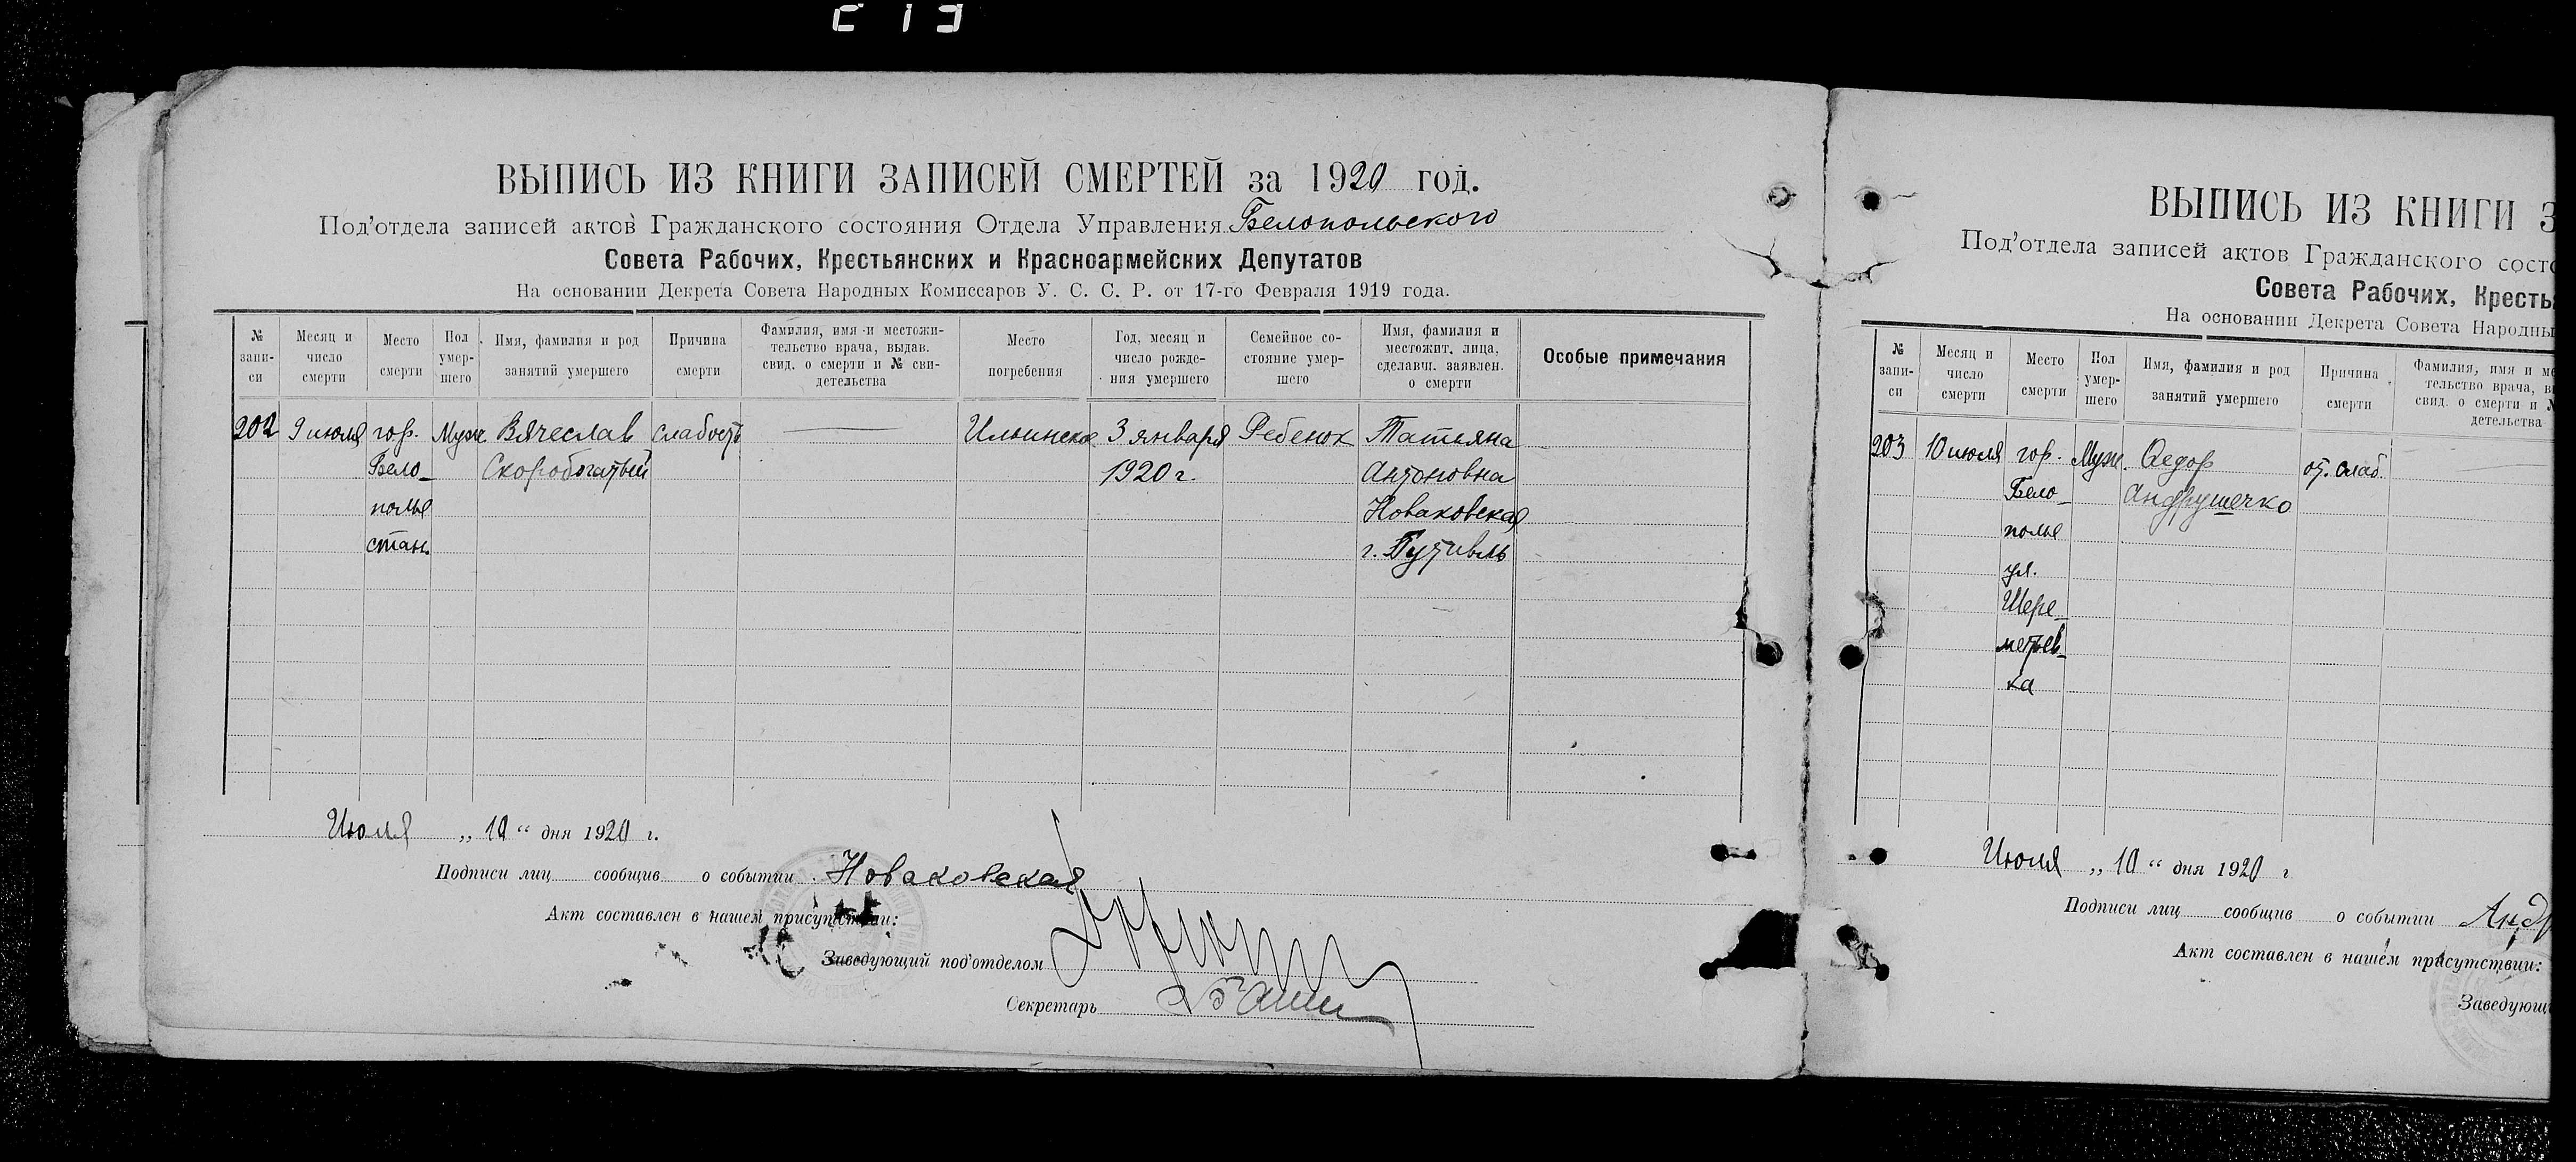 ВЫПИСЬ ИЗ КНИГИ ЗАПИСЕЙ СМЕРТЕЙ за 1920 год.
Под'отдела записей актов Гражданского состояния Отдела Управления Белопольского
Совета Рабочих, Крестьянских и Красноармейских Депутатов
На основании Декрета Совета Народных Комиссаров У. С. С. Р. от 17-го Февраля 1919 года.
№ запи- си
Месяц и число смерти
Место смерти
Пол умер- шего
Имя, фамилия и род занятий умершего
Причина смерти
Фамилия, имя и местожи- тельство врача, выдав. свид. о смерти и № сви- детельства
Место погребения
Год, месяц и число рожде- ния умершего
Семейное со- стояние умер- шего
Имя, фамилия и местожит. лица, сделавш. заявлен. о смерти
Особые примечания
202 9 июля гор. Муж. Вячеслав слабость Ильинское 3 января Ребенок Татьяна
Бело- Скоробогатый 1920 г. Антоновна
полье Новаковская
стан. г. Путивль
Июля „ 10 “ дня 1920 г.
Подписи лиц сообщив о событии Новаковская
Акт составлен в нашем присутствии:
Заведующий под'отделом
Секретарь
ВЫПИСЬ ИЗ КНИГИ З
Под'отдела записей актов Гражданского состо
Совета Рабочих, Кресть
На основании Декрета Совета Народны
№ запи- си
Месяц и число смерти
Место смерти
Пол умер- шего
Имя, фамилия и род занятий умершего
Причина смерти
Фамилия, имя и ме тельство врача, в свид. о смерти и № детельства
203 10 июля гор. Муж. Федор от. слаб.
Бело- Андрушечко
полье
ул.
Шере-
метьев-
ка
Июля „ 10 “ дня 1920 г
Подписи лиц сообщив о событии Андр
Акт составлен в нашем присутствии:
Заведующ